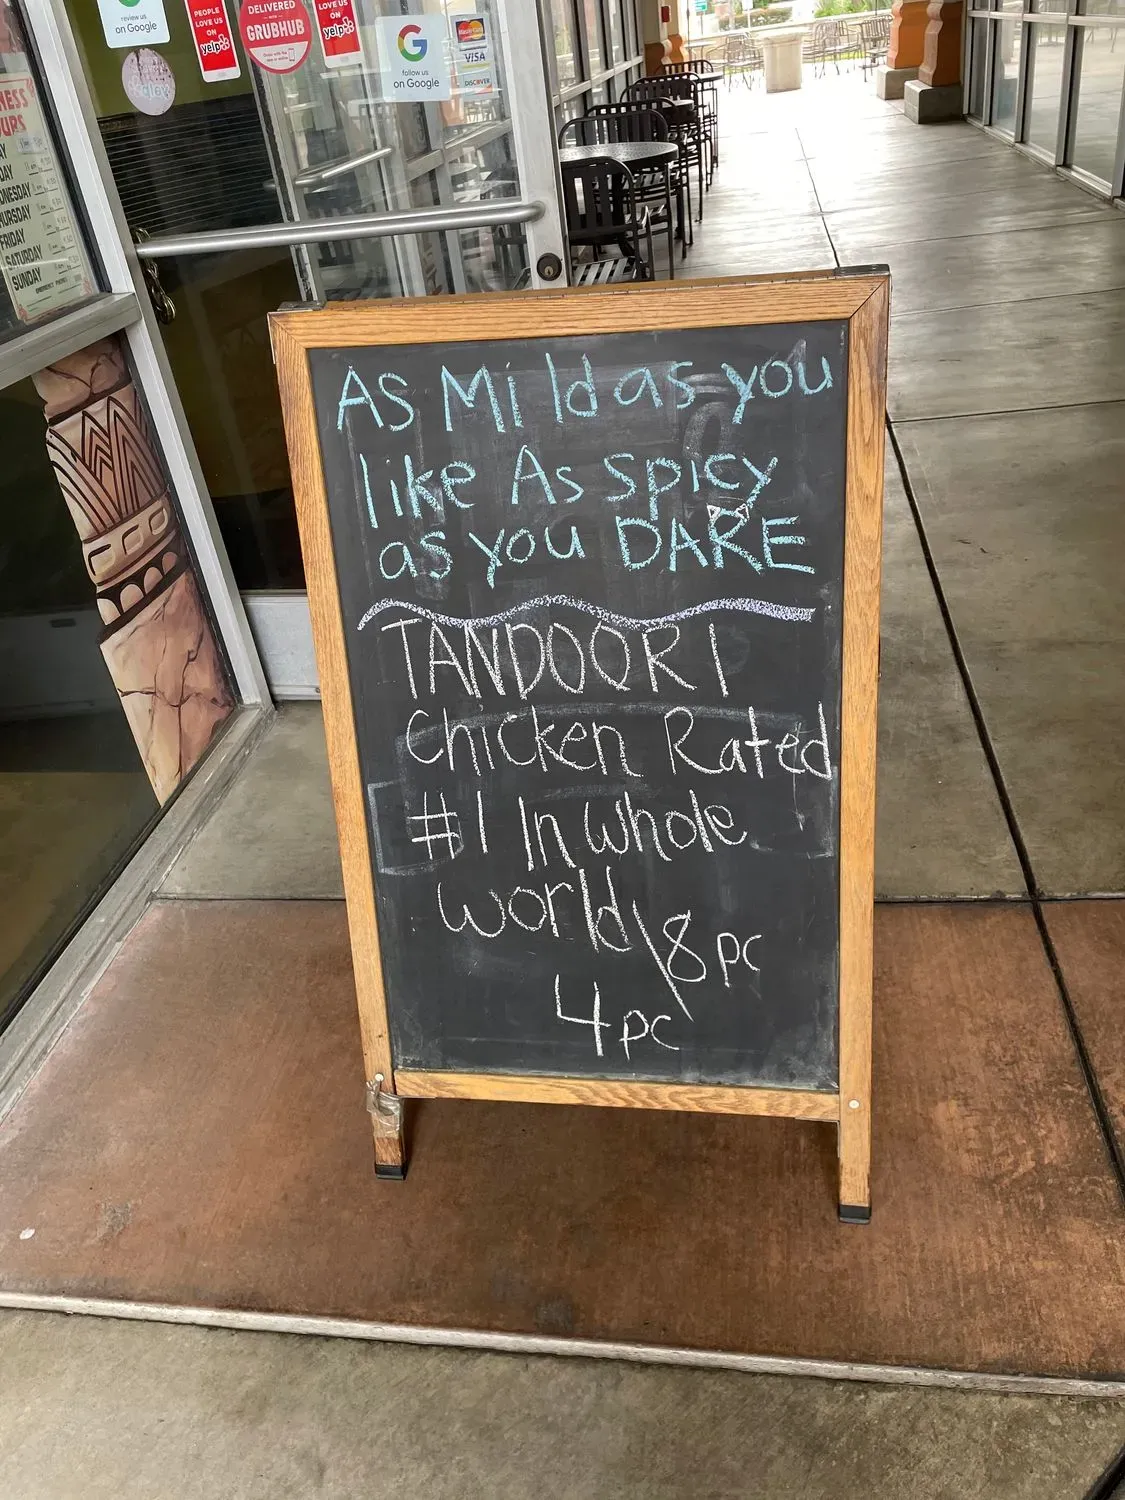 review us
on Google
PEOPLE
LOVE US
ON
yelp
DELIVERED
WITH
GRUBHUB
LOVE US
ON
yelp
G
follow us
on Google
MasterCard
VISA
DISCOVER
FRIDAY
SATURDAY
SUNDAY
As Mild as you
like As spicy
as you DARE
TANDOORI
Chicken Rated
#1 In whole
world
8 pc
4 pc